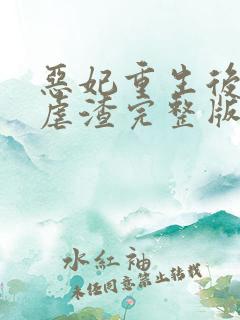 惡妃重生後
虐渣完整版
水紅袖
未任同意禁止轉載